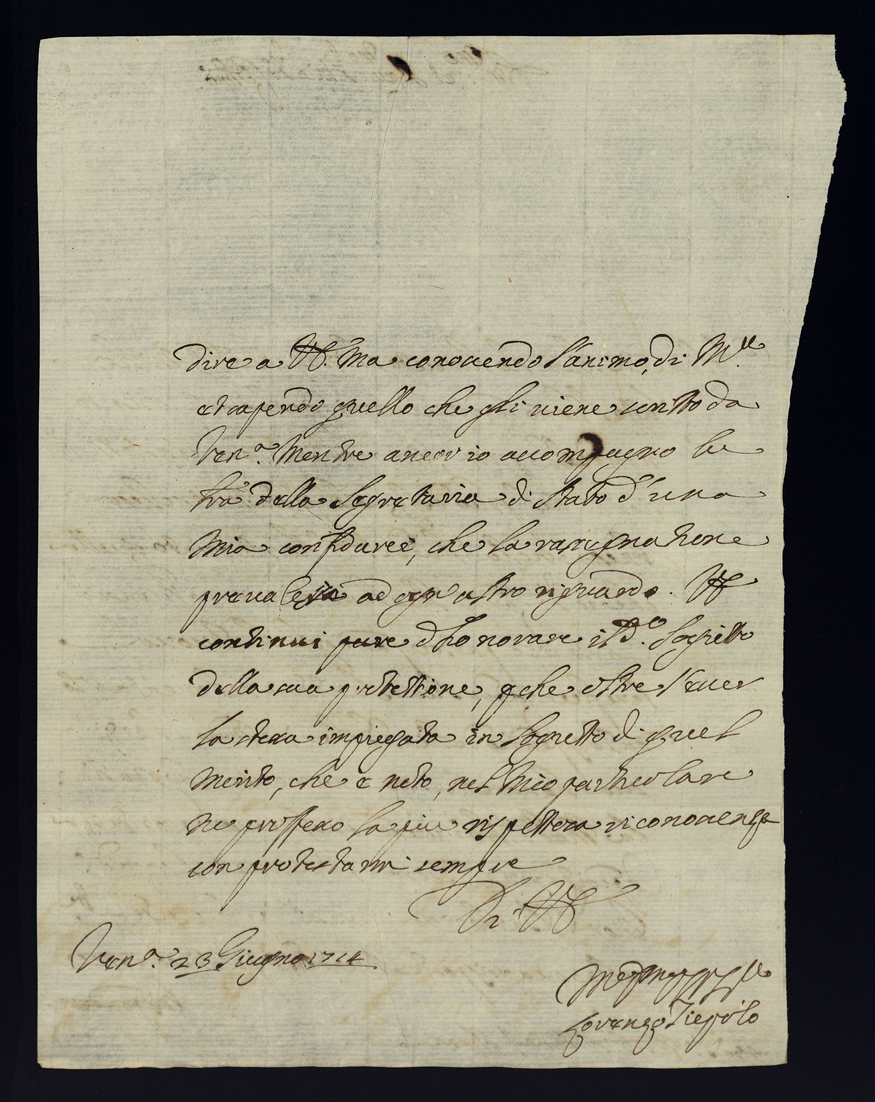 dire a VS. Ma conoscendo l'animo, di M.
et sapendo quello che gli viene scritto da
Ven.ª Mentre ancor io accompagno
della Segretaria di Stato d'una
Mia confidare, che la rassegnatione
prevalessa ad ogn'altro riguardo. VS
continui pure d'honorare il d.º Soggetto
della sua protettione, pche oltre l'aver
la stessa impiegata in Soggetto di quel
Merito, che è noto, nel Mio particolare
ne professo la più rispettosa riconoscenza
con protestarmi sempre
Di VS
Ven.ª 23 Giugno 1714
Lorenzo Tiepolo